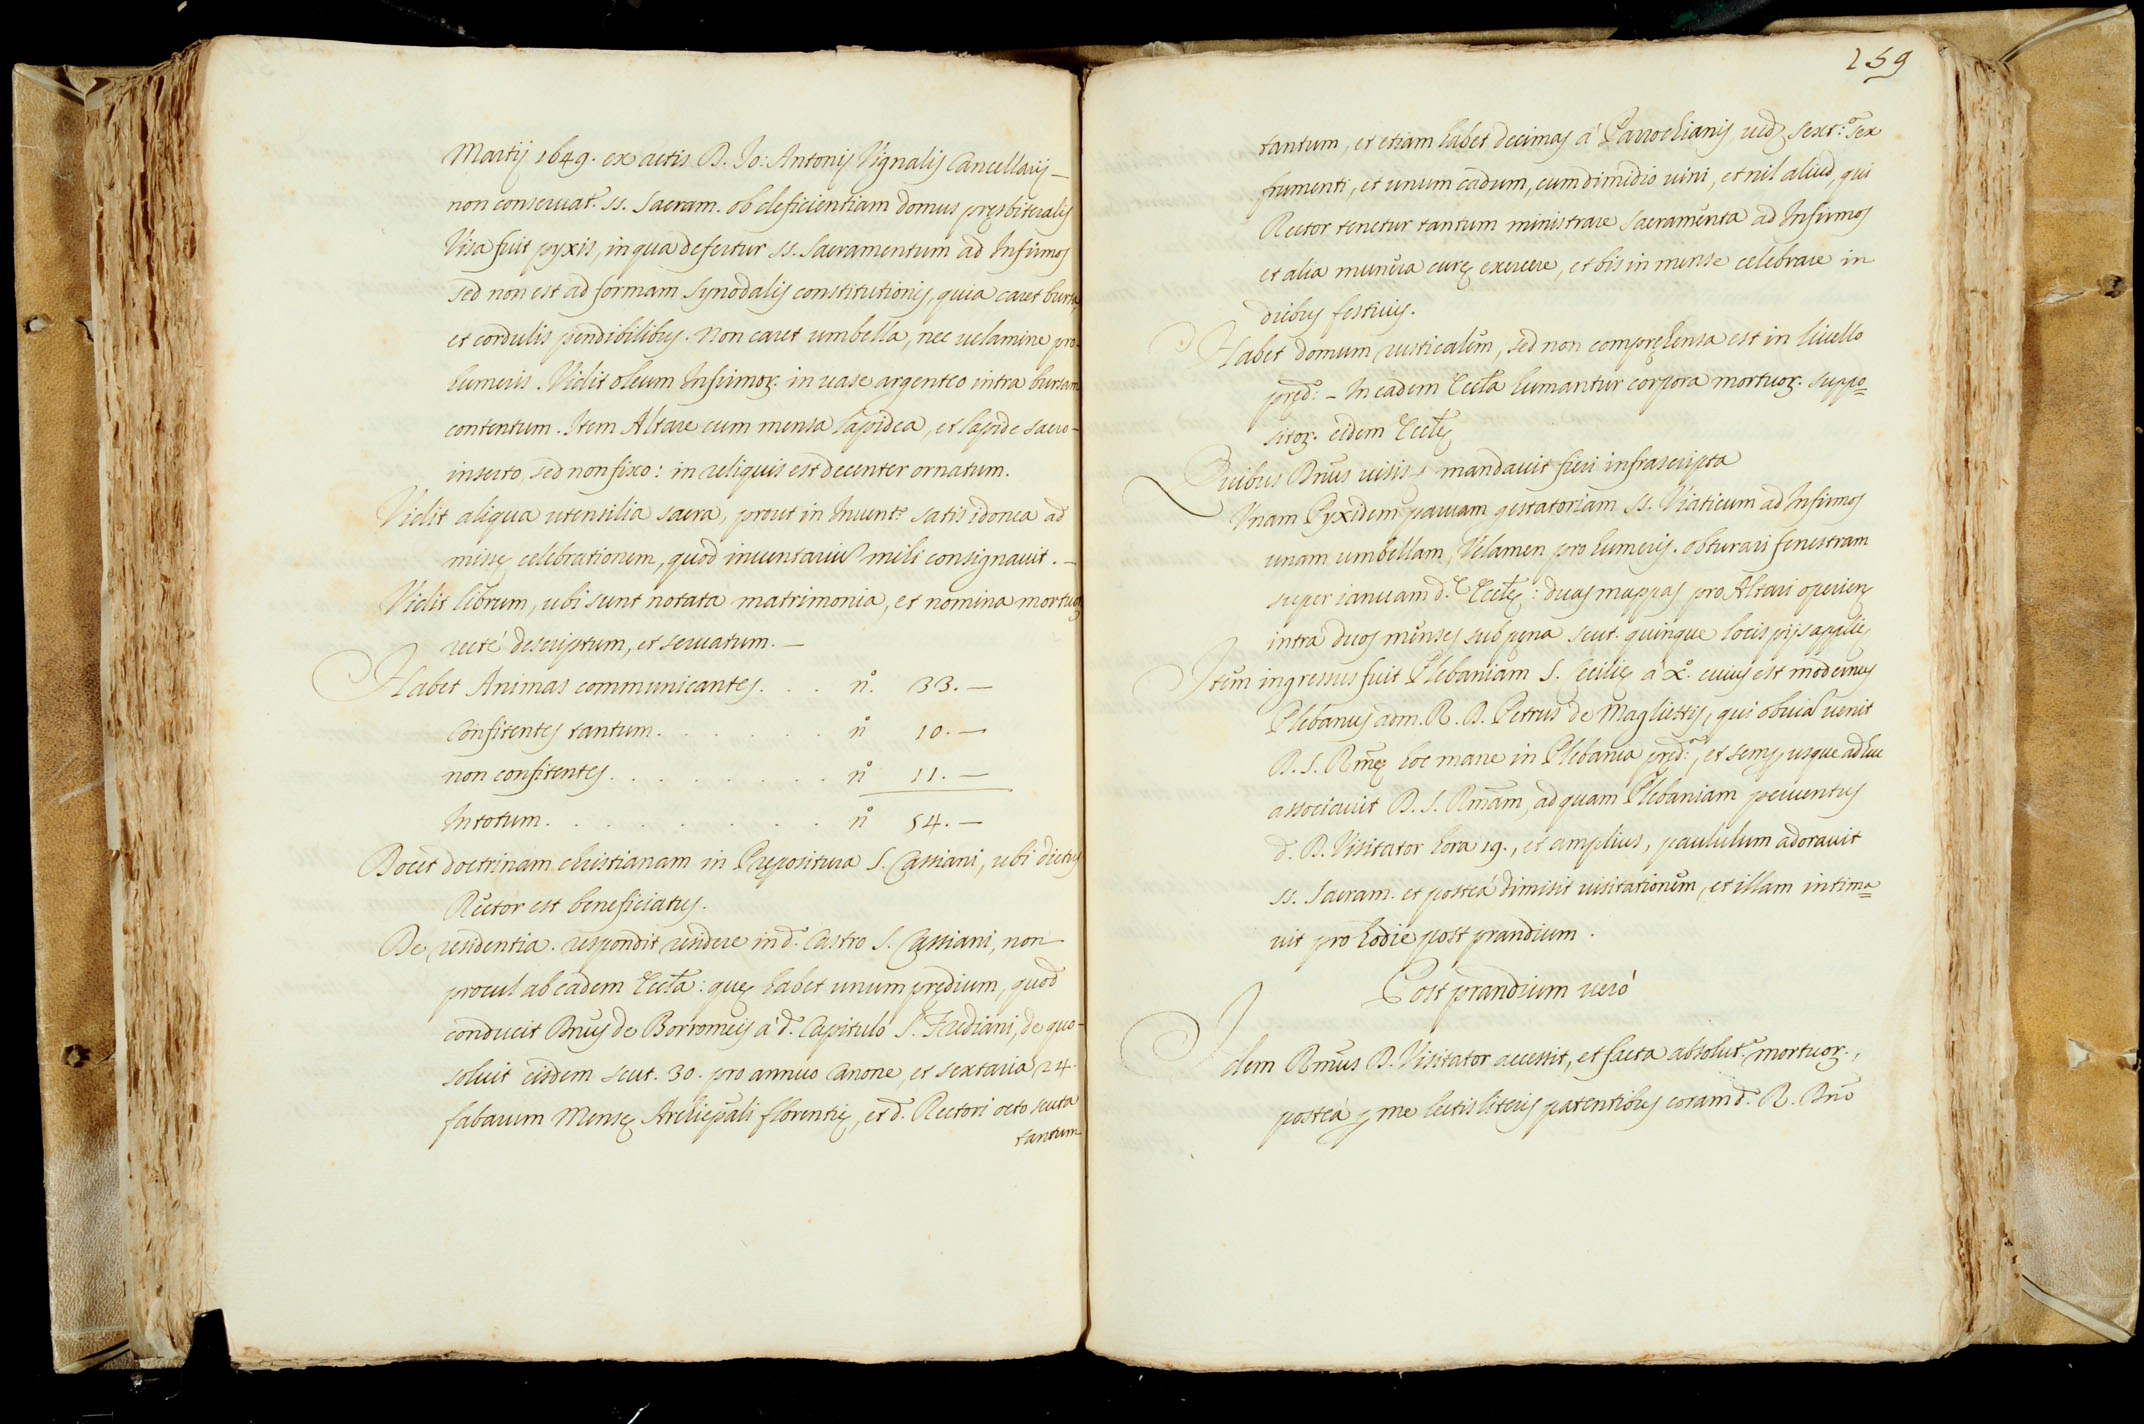 Martij 1649. ex actis D. Jo: Antonij Vignalis Cancellarij –
non conseruat.r ss. Sacram. ob deficientiam domus pręsbiteralis
Visa fuit pyxis, in qua defertur ss. Sacramentum ad Infirmos
sed non est ad formam Synodalis constitutionis, quia caret bursa,
et cordulis pendibilibus. Non caret umbella, nec uelamine pro
humeris. Vidit oleum Infirmor. in uase argenteo intra bursam
contentum. Item Altare cum mensa lapidea, et lapide sacro –
inserto, sed non fixo: in reliquis est decenter ornatum.
Vidit aliqua utensilia sacra, prout in Inuent.o satis idonea ad
missę celebrationem, quod inuentariũ mihi consignauit. –
Vidit librum, ubi sunt notata matrimonia, et nomina mortuor
recté descriptum, et seruatum. –
Habet Animas communicantes. . . n.o 33. –
Confitentes tantum. . . . . . . n.o 10. –
non confitentes. . . . . . . . n.o 11. –
In totum. . . . . . . . . n.o 54. –
Docet doctrinam christianam in Prępositura S. Cassiani, ubi dictus
Rector est beneficiatus.
De residentia. respondit residere in d.o Castro S. Cassiani, non
procul ab eadem Eccła: quę habet unum prędium, quod
conducit Dnũs de Borromeis á d.o Capitulo S. Frediani, de quo –
soluit eisdem scut. 30. pro annuo Canone, et sextaria 24.
fabarum Mensę Archiepãli florentię, et d.o Rectori octo scuta
tantum
259
tantum, et etiam habet decimas á Parrochianis, uidz sext.a sex
frumenti, et unum cadum, cum dimidio uini, et nil aliud, qui
Rector tenetur tantum ministrare sacramenta ad Infirmos
et alia munera curę exercere, et bis in mense celebrare in
diebus festiuis.
Habet domum rusticalem, sed non compręhensa est in liuello
pręd.o – In eadem Eccła humantur corpora mortuor. suppo=
sitor. eidem Eccłę
Quibus Dnũs uisis, mandauit fieri infrascripta
Vnam Pyxidem paruam gestatoriam ss. Viaticum ad Infirmos
unam umbellam, Velamen pro humeris. obturari fenestram
super ianuam d.ę Eccłę: duas mappas pro Altari operien
intra duos menses sub pęna scut. quinque locis pijs applic
Item ingressus fuit Plebaniam S. Cecilię á X.o cuius est modernus
Plebanus adm. R. D. Petrus de Magliettis, qui obuiã uenit
D. S. Rm̃ę hoc mane in Plebania pręd.a, et semp usque adhuc
associauit D. S. Rm̃am, ad quam Plebaniam peruentus
d. D. Visitator hora 19., et amplius, paululum adorauit
ss. Sacram. et posteá dimisit uisitationem, et illam intima=
uit pro hodie post prandium.
Post prandium ueró
Idem Rm̃us D. Visitator accessit, et facta absolut.e mortuor.,
posteá p me lectis literis patentibus coram d.o R. Dnõ